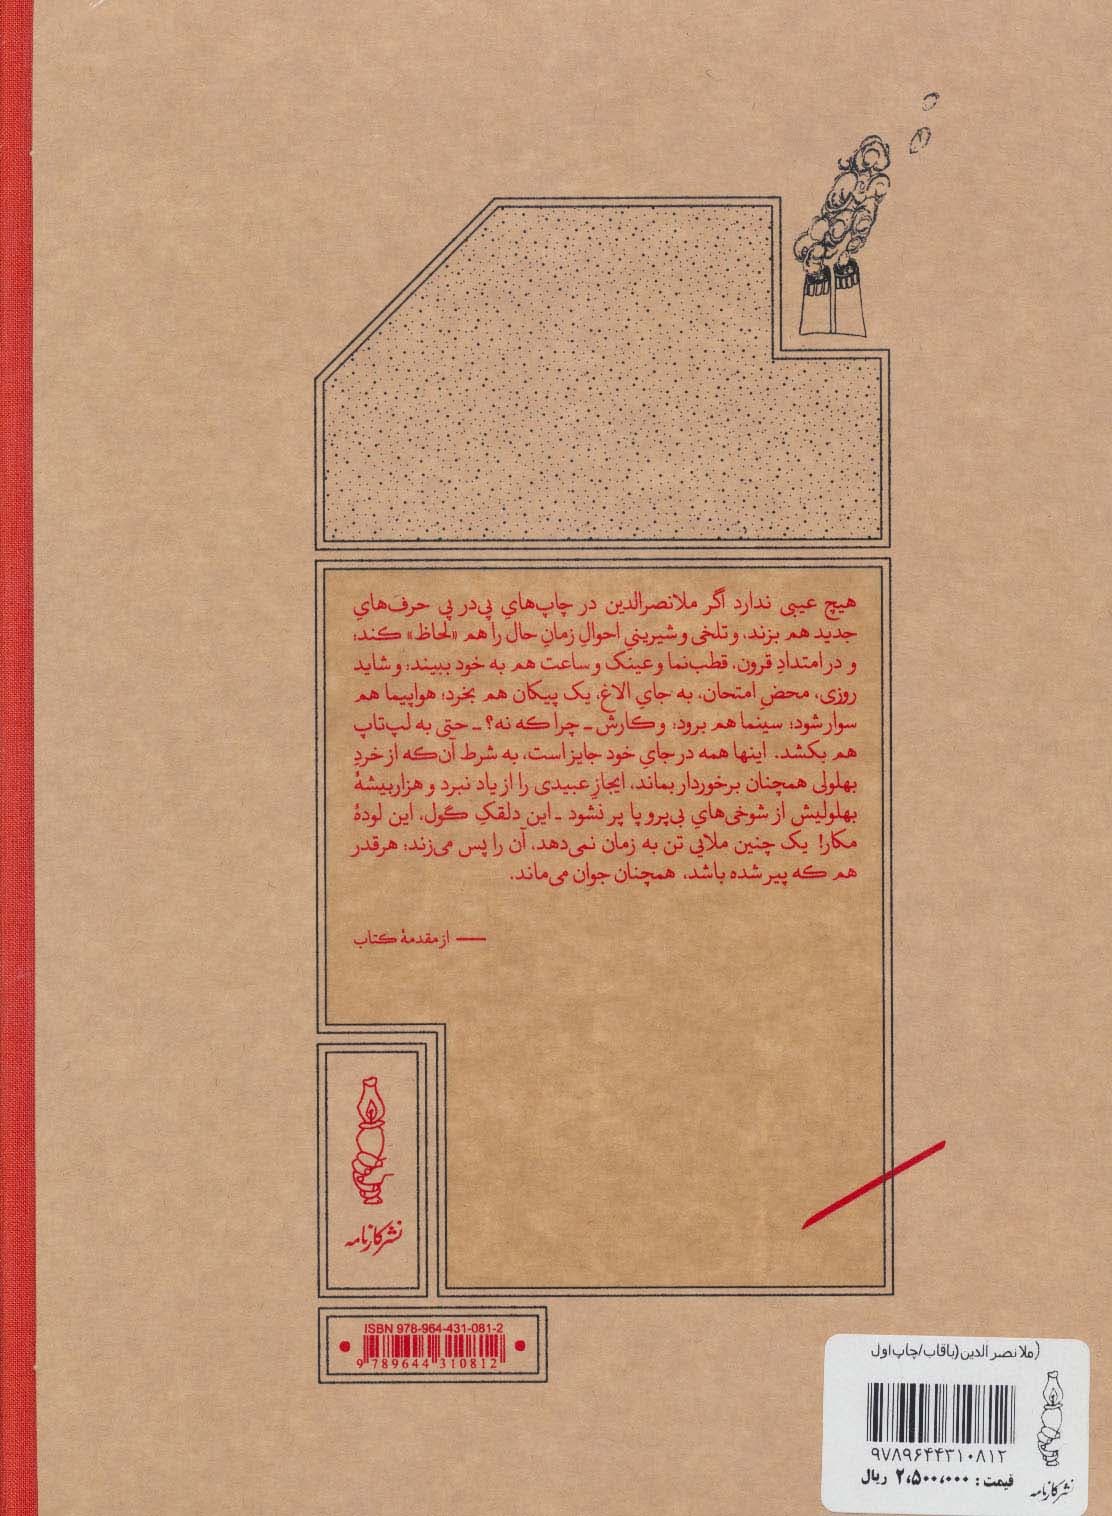 هیچ عیبی ندارد اگر ملانصرالدین در چاپ‌هایِ پی‌در پی حرف‌هایِ
جدید هم بزند، و تلخی و شیرینیِ احوالِ زمانِ حال را هم «لحاظ» کند؛
و در امتدادِ قرون، قطب‌نما و عینک و ساعت هم به خود ببیند؛ و شاید
روزی، محضِ امتحان، به جایِ الاغ، یک پیکان هم بخرد؛ هواپیما هم
سوار شود؛ سینما هم برود؛ و کارش ـ چرا که نه؟ ـ حتی به لپ‌تاپ
هم بکشد. اینها همه در جایِ خود جایز است، به شرط آن‌که از خردِ
بهلولی همچنان برخوردار بماند، ایجازِ عبیدی را از یاد نبرد و هزاربیشهٔ
بهلولیش از شوخی‌هایِ بی‌پر و پا پر نشود ـ این دلقکِ گول، این لودهٔ
مکار! یک چنین ملایی تن به زمان نمی‌دهد، آن را پس می‌زند؛ هرقدر
هم که پیر شده باشد، همچنان جوان می‌ماند.
— از مقدمهٔ کتاب
نشر کارنامه
ISBN 978-964-431-081-2
9 789644 310812
(ملا نصرالدین(باقاب/چاپ اول
۹۷۸۹۶۴۴۳۱۰۸۱۲
قیمت: ۲،۵۰۰،۰۰۰ ریال
نشر کارنامه